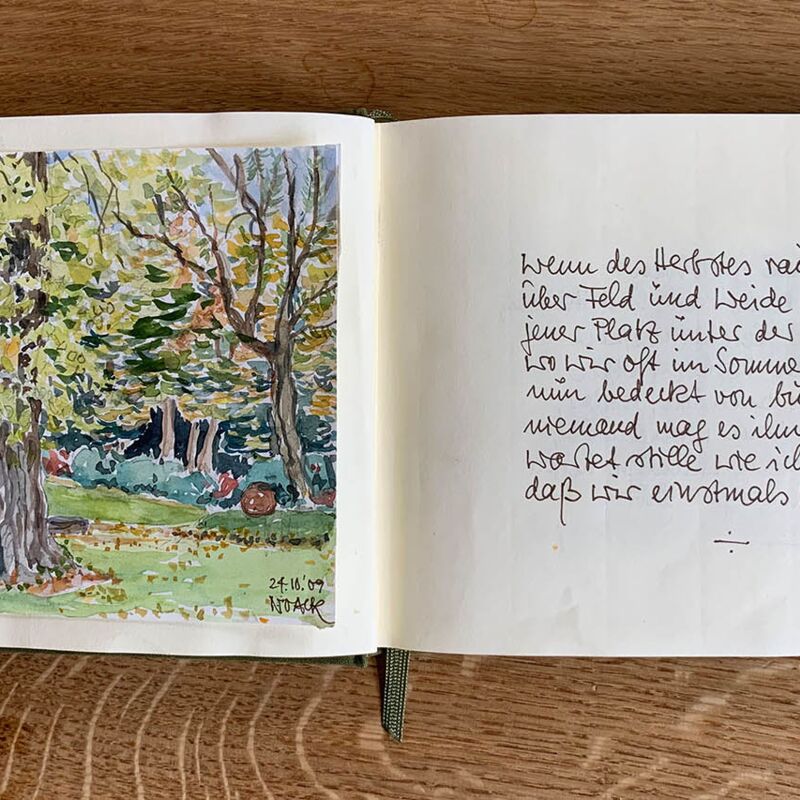 24.10.'09
NOACK
Wenn des Herbstes
über Feld und Weide
jener Platz unter der
wo wir oft im
nun bedeckt von
niemand mag es
wartet stille wie
daß wir einstmals